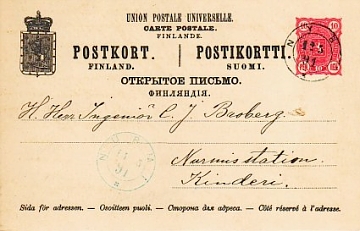 UNION POSTALE UNIVERSELLE.
CARTE POSTALE.
FINLANDE.
POSTKORT. | POSTIKORTTI
FINLAND. SUOMI.
ОТКРЫТОЕ ПИСЬМО.
ФИНЛЯНДІЯ.
10 10
H. Herr Ingeniör C. J. Broberg.
Nurmis station.
Kinderi.
Sida för adressen. — Osoitteen puoli. — Сторона для адреса. — Côté réservé à l'adresse.